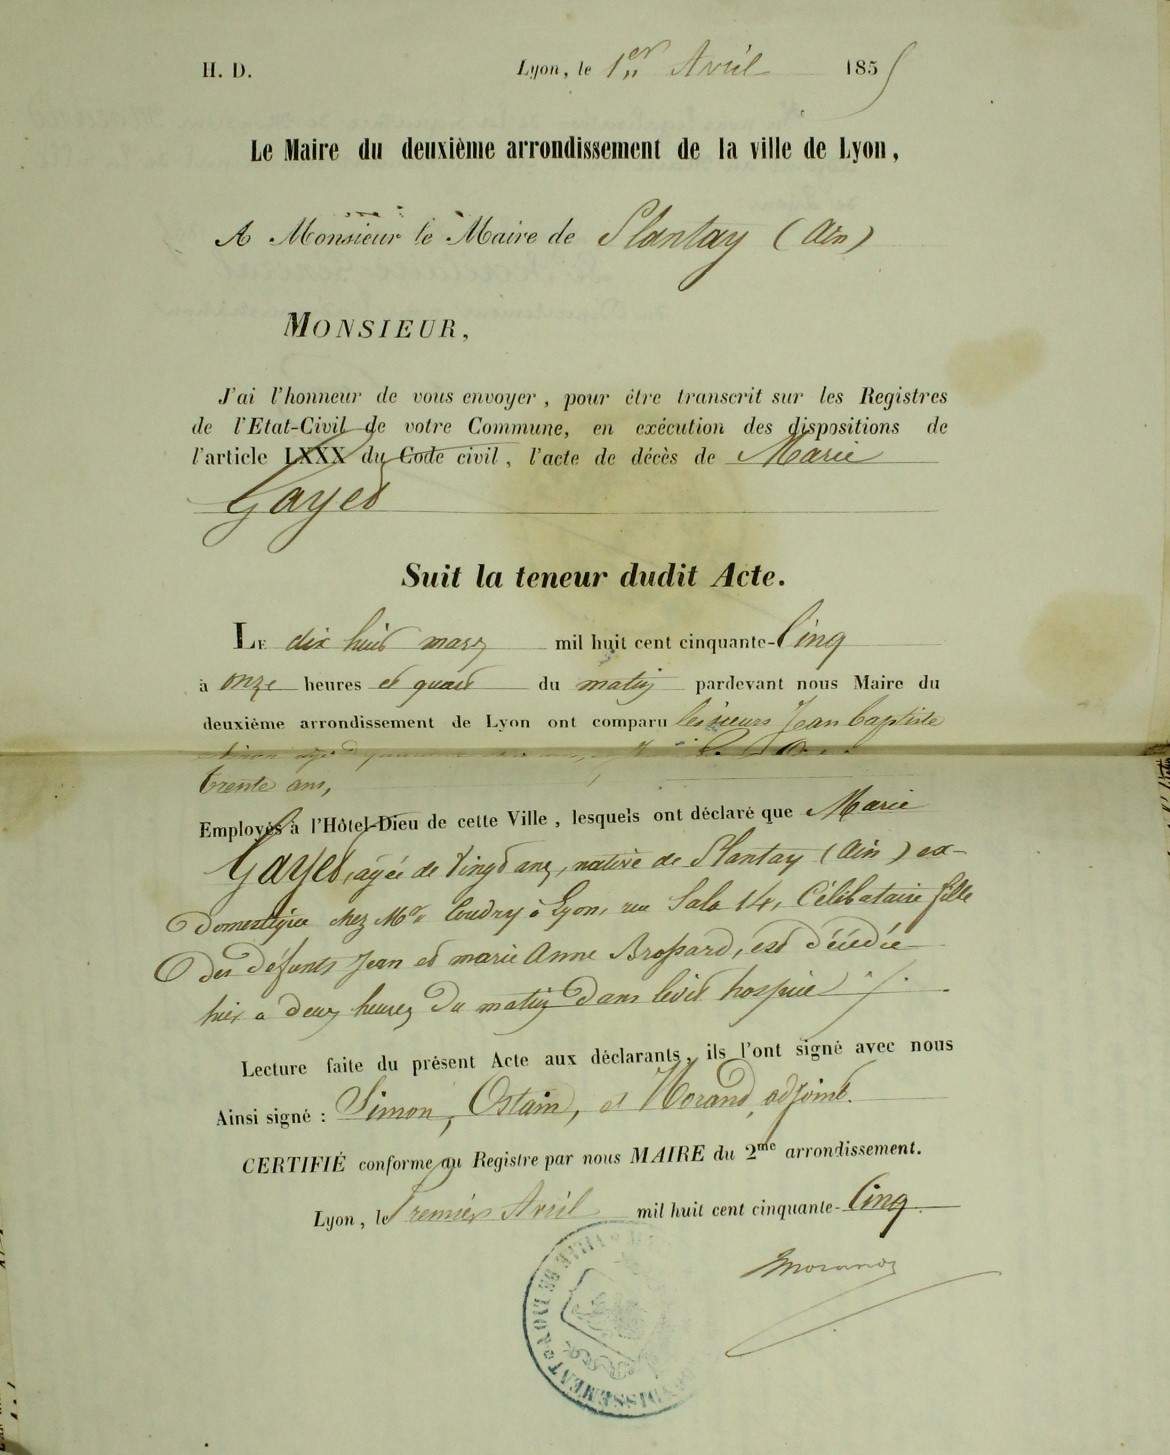 H. D.
Lyon, le 1er Avril 1855
Le Maire du deuxième arrondissement de la ville de Lyon,
A Monsieur le Maire de Plantay (Ain)
MONSIEUR,
J'ai l'honneur de vous envoyer, pour être transcrit sur les Registres
de l'Etat-Civil de votre Commune, en exécution des dispositions de
l'article LXXX du Code civil, l'acte de décès de Marie
Gayet
Suit la teneur dudit Acte.
LE dix huit mars mil huit cent cinquante-Cinq
à onze heures et quart du matin pardevant nous Maire du
deuxième arrondissement de Lyon ont comparu les sieurs Jean Baptiste
trente ans,
Employés à l'Hôtel-Dieu de cette Ville, lesquels ont déclaré que Marie
Gayet, agée de Vingt ans, native de Plantay (Ain) ex-
Domestique chez Mr Coudry à Lyon, rue Sala 14, Célibataire fille
Des défunts Jean et marie Anne Brossard, est décédée
hier a deux heures Du matin Dans ledit hospice
Lecture faite du présent Acte aux déclarants, ils l'ont signé avec nous
Ainsi signé : Simon, Ostain, et Morand, adjoint.
CERTIFIÉ conforme au Registre par nous MAIRE du 2me arrondissement.
Lyon, le Premier Avril mil huit cent cinquante-Cinq
Morand